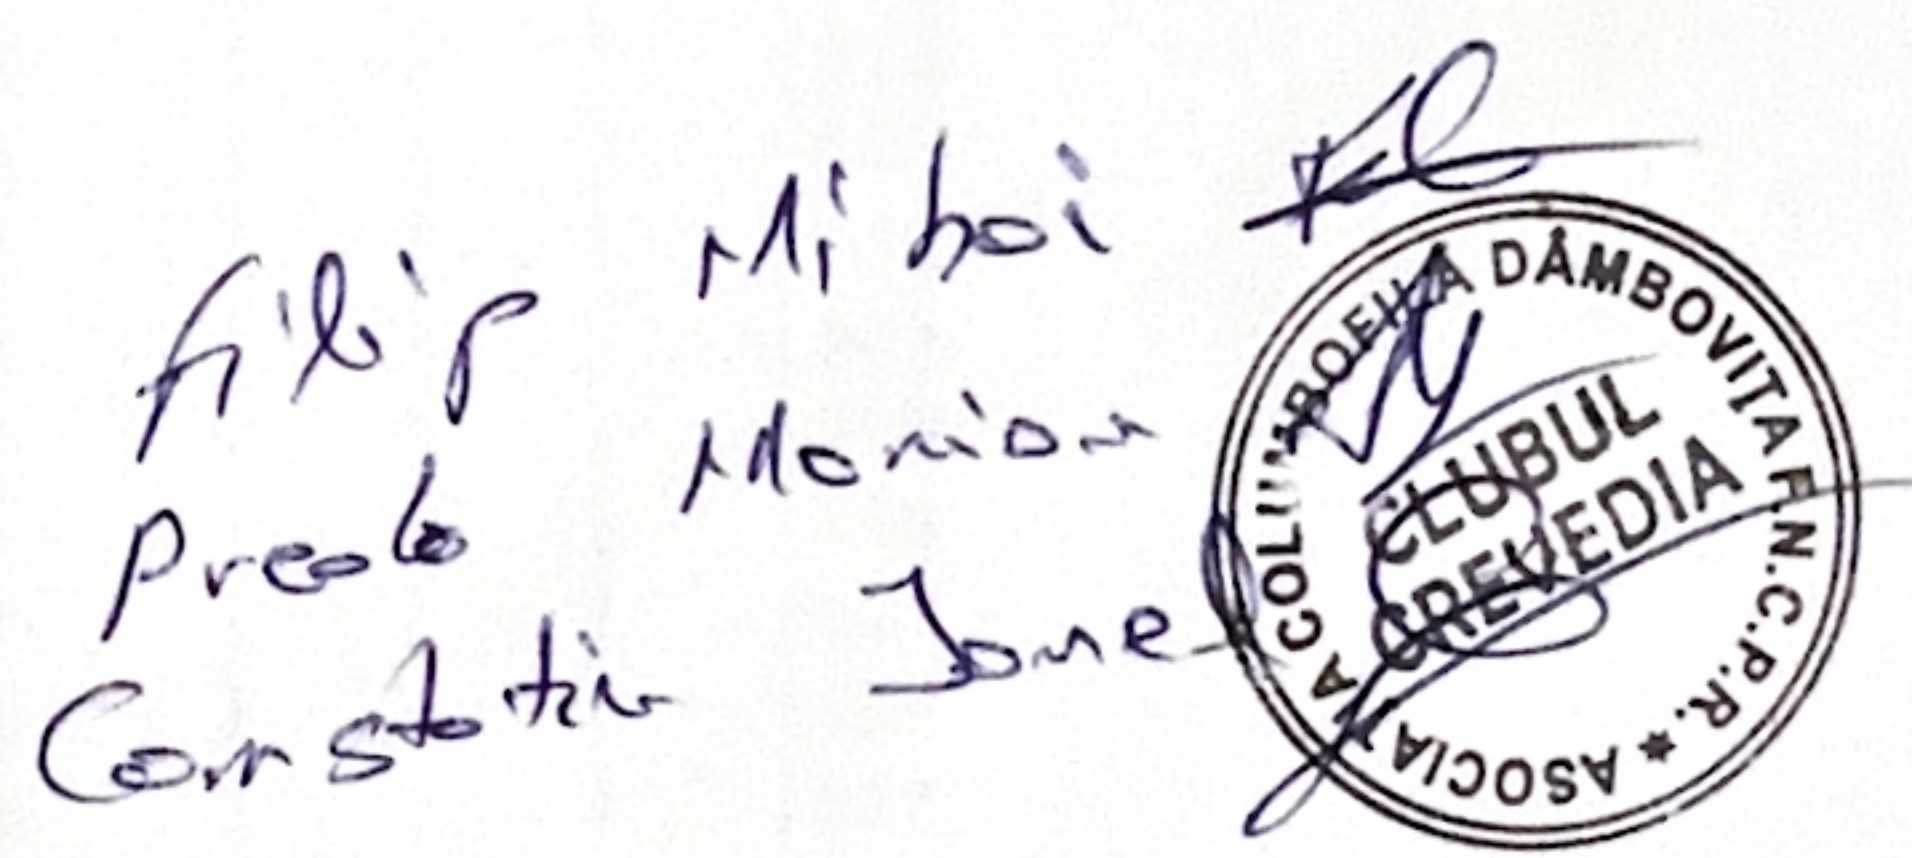 Filip Mihai
Preda Marian
Constatin Ionel
ASOCIATIA COLUMBOFILA DÂMBOVITA F.N.C.P.R. *
CLUBUL
CREVEDIA